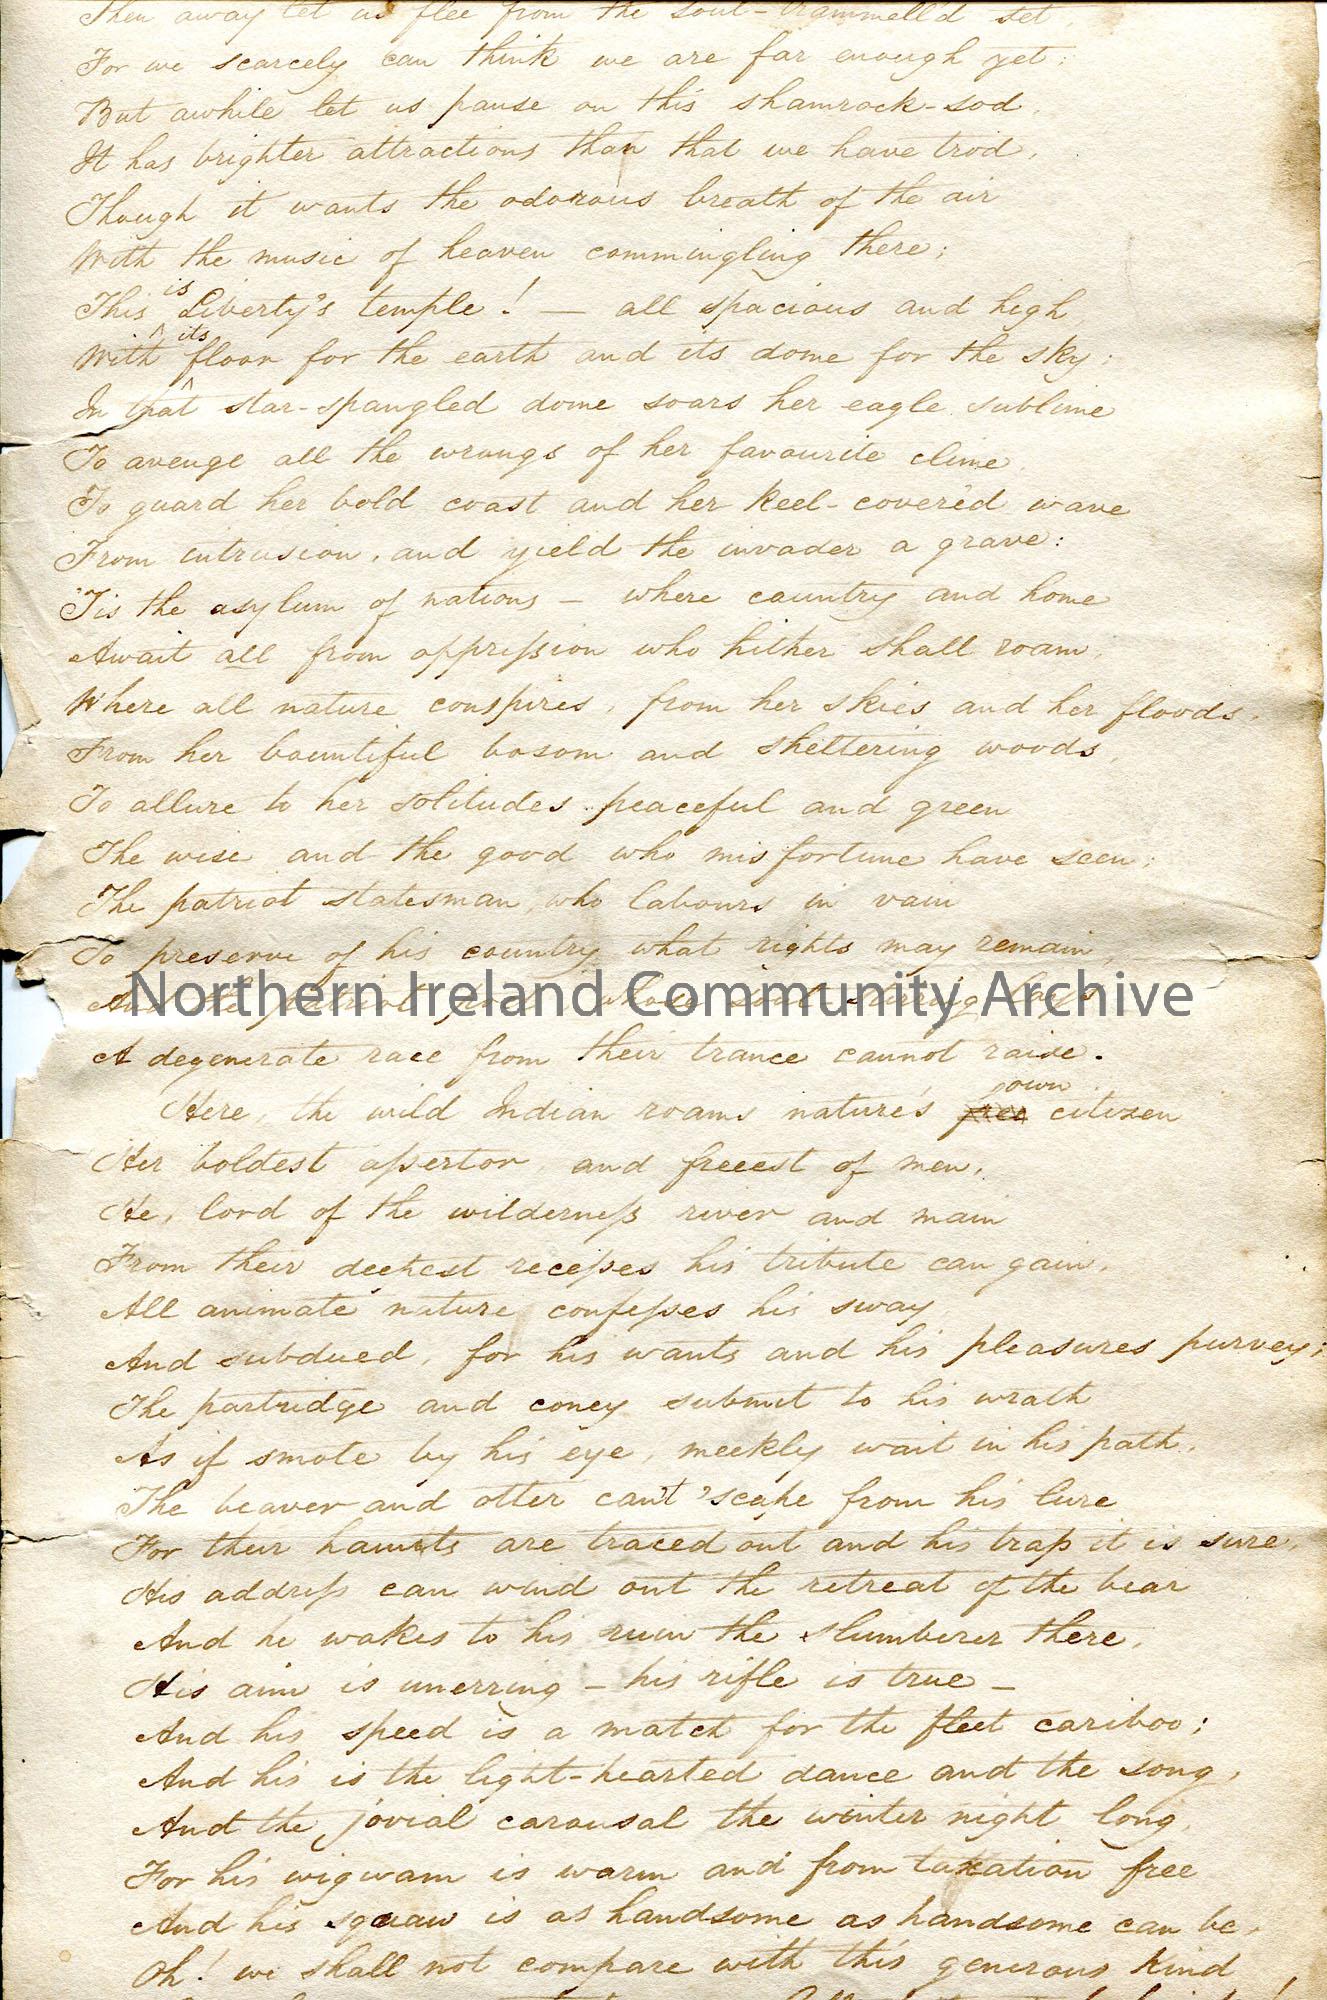 Then away let us flee from the soul-trammell'd set,
For we scarcely can think we are far enough yet;
But awhile let us pause on this shamrock-sod,
It has brighter attractions than that we have trod,
Though it wants the odorous breath of the air
With the music of heaven commingling there;
This is Liberty's temple! — all spacious and high
With its floor for the earth and its dome for the sky;
In that star-spangled dome soars her eagle sublime
To avenge all the wrongs of her favourite clime,
To guard her bold coast and her keel-cover'd wave
From intrusion, and yield the invader a grave:
'Tis the asylum of nations — where country and home
Await all from oppression who hither shall roam,
Where all nature conspires, from her skies and her floods,
From her bountiful bosom and sheltering woods,
To allure to her solitudes peaceful and green
The wise and the good who misfortune have seen;
The patriot statesman, who labours in vain
To preserve of his country what rights may remain,
And the patriot whose soul-stirring lays
Northern Ireland Community Archive
A degenerate race from their trance cannot raise.
Here, the wild Indian roams nature's own citizen
Her boldest assertor, and freeest of men,
He, lord of the wilderness river and main
From their deepest recesses his tribute can gain,
All animate nature confesses his sway
And subdued, for his wants and his pleasures purvey;
The partridge and coney submit to his wrath
As if smote by his eye, meekly wait in his path,
The beaver and otter can't 'scape from his lure
For their haunts are traced out and his trap it is sure,
His address can wind out the retreat of the bear
And he wakes to his ruin the slumberer there,
His aim is unerring — his rifle is true —
And his speed is a match for the fleet cariboo;
And his is the light-hearted dance and the song,
And the jovial carousal the winter night long,
For his wigwam is warm and from taxation free
And his squaw is as handsome as handsome can be,
Oh! we shall not compare with this generous kind